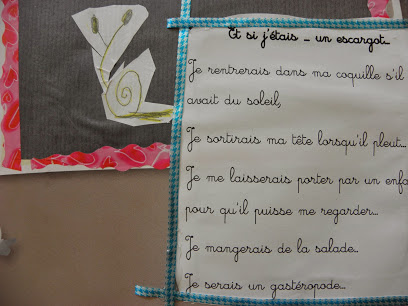 Et si j'étais _ un escargot...
Je rentrerais dans ma coquille s'il
avait du soleil,
Je sortirais ma tête lorsqu'il pleut...
Je me laisserais porter par un enfa
pour qu'il puisse me regarder...
Je mangerais de la salade...
Je serais un gastéropode...